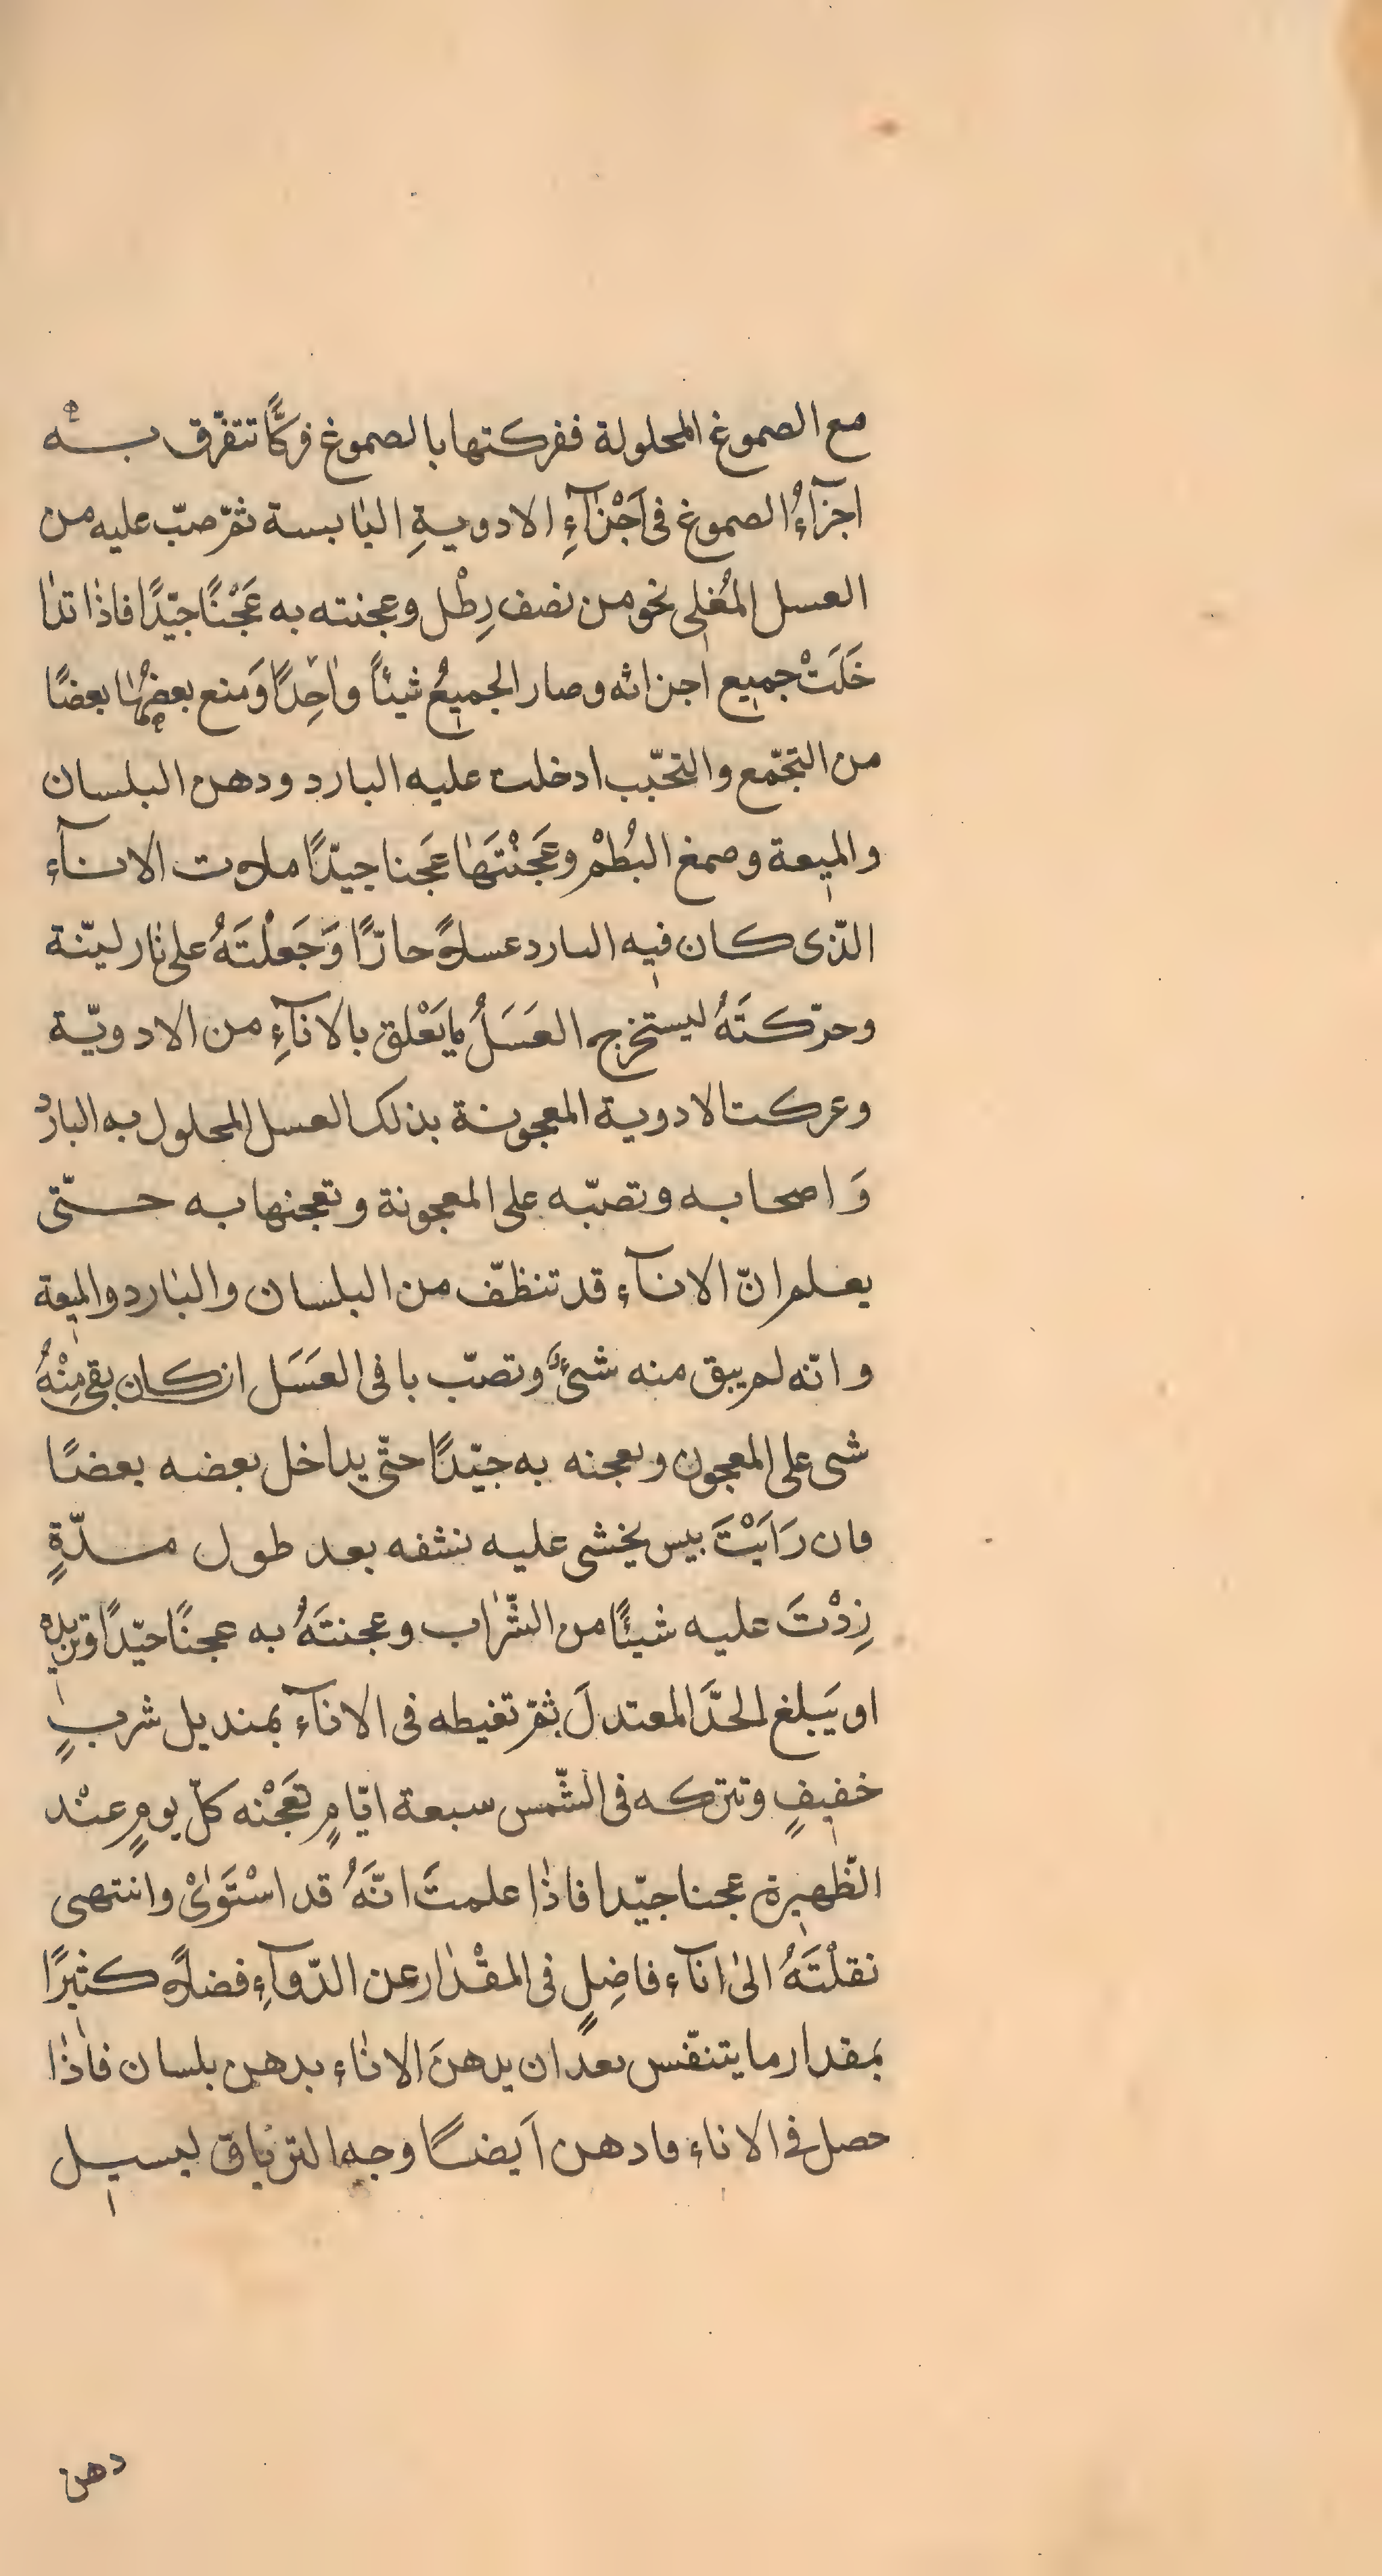 مع الصموغ المحلولة ففركتها بالصموغ فركًّا تتفرّق به
اجزآءُ الصموغ فى اَجْزآءِ الادويةِ اليابسة ثمّ صبّ عليه من
العسل المُغلى نحو من نصف رِطْل وعجنته به عَجْنًا جيّدًا فاذا تدا
خَلَتْ جميع اجزائه وصار الجميعُ شيئاً واحِدًا وَمنع بعضُها بعضًا
من التجّمع والتحّبب ادخلت عليه البارد ودهن البلسان
والميعة وصمغ البُطْم وعَجَنْتَها عَجنا جيّدًا ملات الانآء
الذّى كان فيه البارد عسلاً حارًّا وَجَعلْتَهُ على نار ليّنة
وحرّكتَهُ ليستخرج العَسَلُ ما يَعْلق بالانآءِ من الادويّة
وعركت الادوية المعجونة بذلك العسل المحلول به البارد
وَاصحابه وتصبّه على المعجونة وتعجنها به حتّى
يعلم انّ الانآء قد تنظّف من البلسان والبارد والميعة
وانّه لم يبق منه شئٌ وتصبّ باقى العَسَل ان كان بقى مِنْهُ
شى على المعجون وبعجنه به جيّدًا حتّى يداخل بعضه بعضًا
فان رَاَيْتَ بيس يخشى عليه نشفه بعد طول مدّةٍ
زِدْتَ عليه شيئًا من الشّراب وعجنتَهُ به عجنًا جيّدًا
او يَبلغ الحدَّ المعتدلَ ثمّ تغيطه فى الانآء بمنديل شربٍ
خفيفٍ وتتركه فى الشّمس سبعة ايّامٍ تعَجْنه كلّ يومٍ عنْد
الظّهيرة عجنا جيّدا فاذا علمتَ انَّهُ قد اسْتَوىْ وانتهى
نقلْتَهُ الى انآء فاضِلٍ فى المقْدار عن الدّوآءِ فضلاً كثيرًا
بمقدار ما يتنفّس بعد ان يدهنَ الاناء بدهن بلسان فاذا
حصل فى الاناء فادهن اَيضًا وجه الترياق ليسيل
دهن